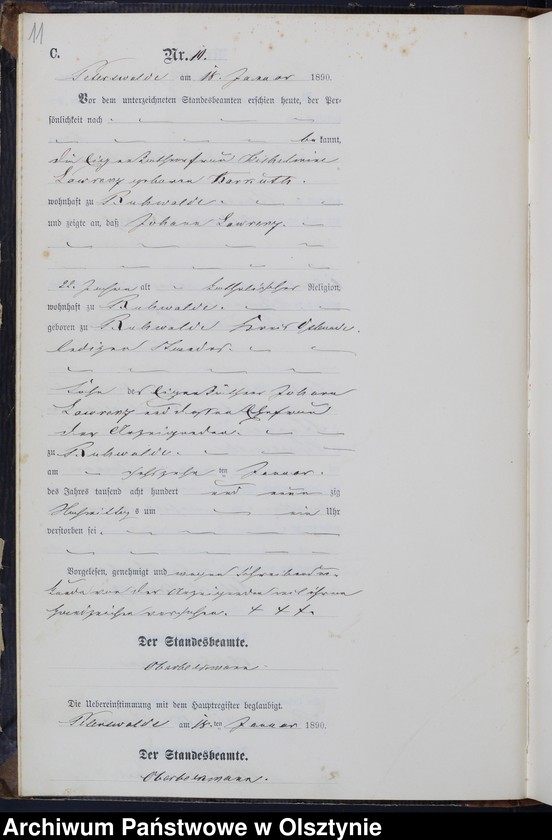 11
C.
Nr. 11.
Peterswalde am 18. Januar 1890.
Vor dem unterzeichneten Standesbeamten erschien heute, der Per-
sönlichkeit nach
be kannt,
die Eigenthümerfrau Wilhelmine
Lawrenz geborene
wohnhaft zu Ruhwalde.
und zeigte an, daß Johann Lawrenz.
22 Jahre alt katholischer Religion,
wohnhaft zu Ruhwalde.
geboren zu Ruhwalde Kreis Osterode.
ledigen Standes.
Sohn des Eigenthümers Johann
Lawrenz und dessen Ehefrau
der Anzeigenden.
zu Ruhwalde.
am sechszehn ten Januar.
des Jahres tausend acht hundert und neun zig
Nachmittags um ein Uhr
verstorben sei.
Vorgelesen, genehmigt und wegen Schreibensun-
kunde von der Anzeigenden mit ihrem
Handzeichen versehen. + + +.
Der Standesbeamte.
Die Uebereinstimmung mit dem Hauptregister beglaubigt.
Peterswalde am 18. ten Januar 1890.
Der Standesbeamte.
Archiwum Państwowe w Olsztynie